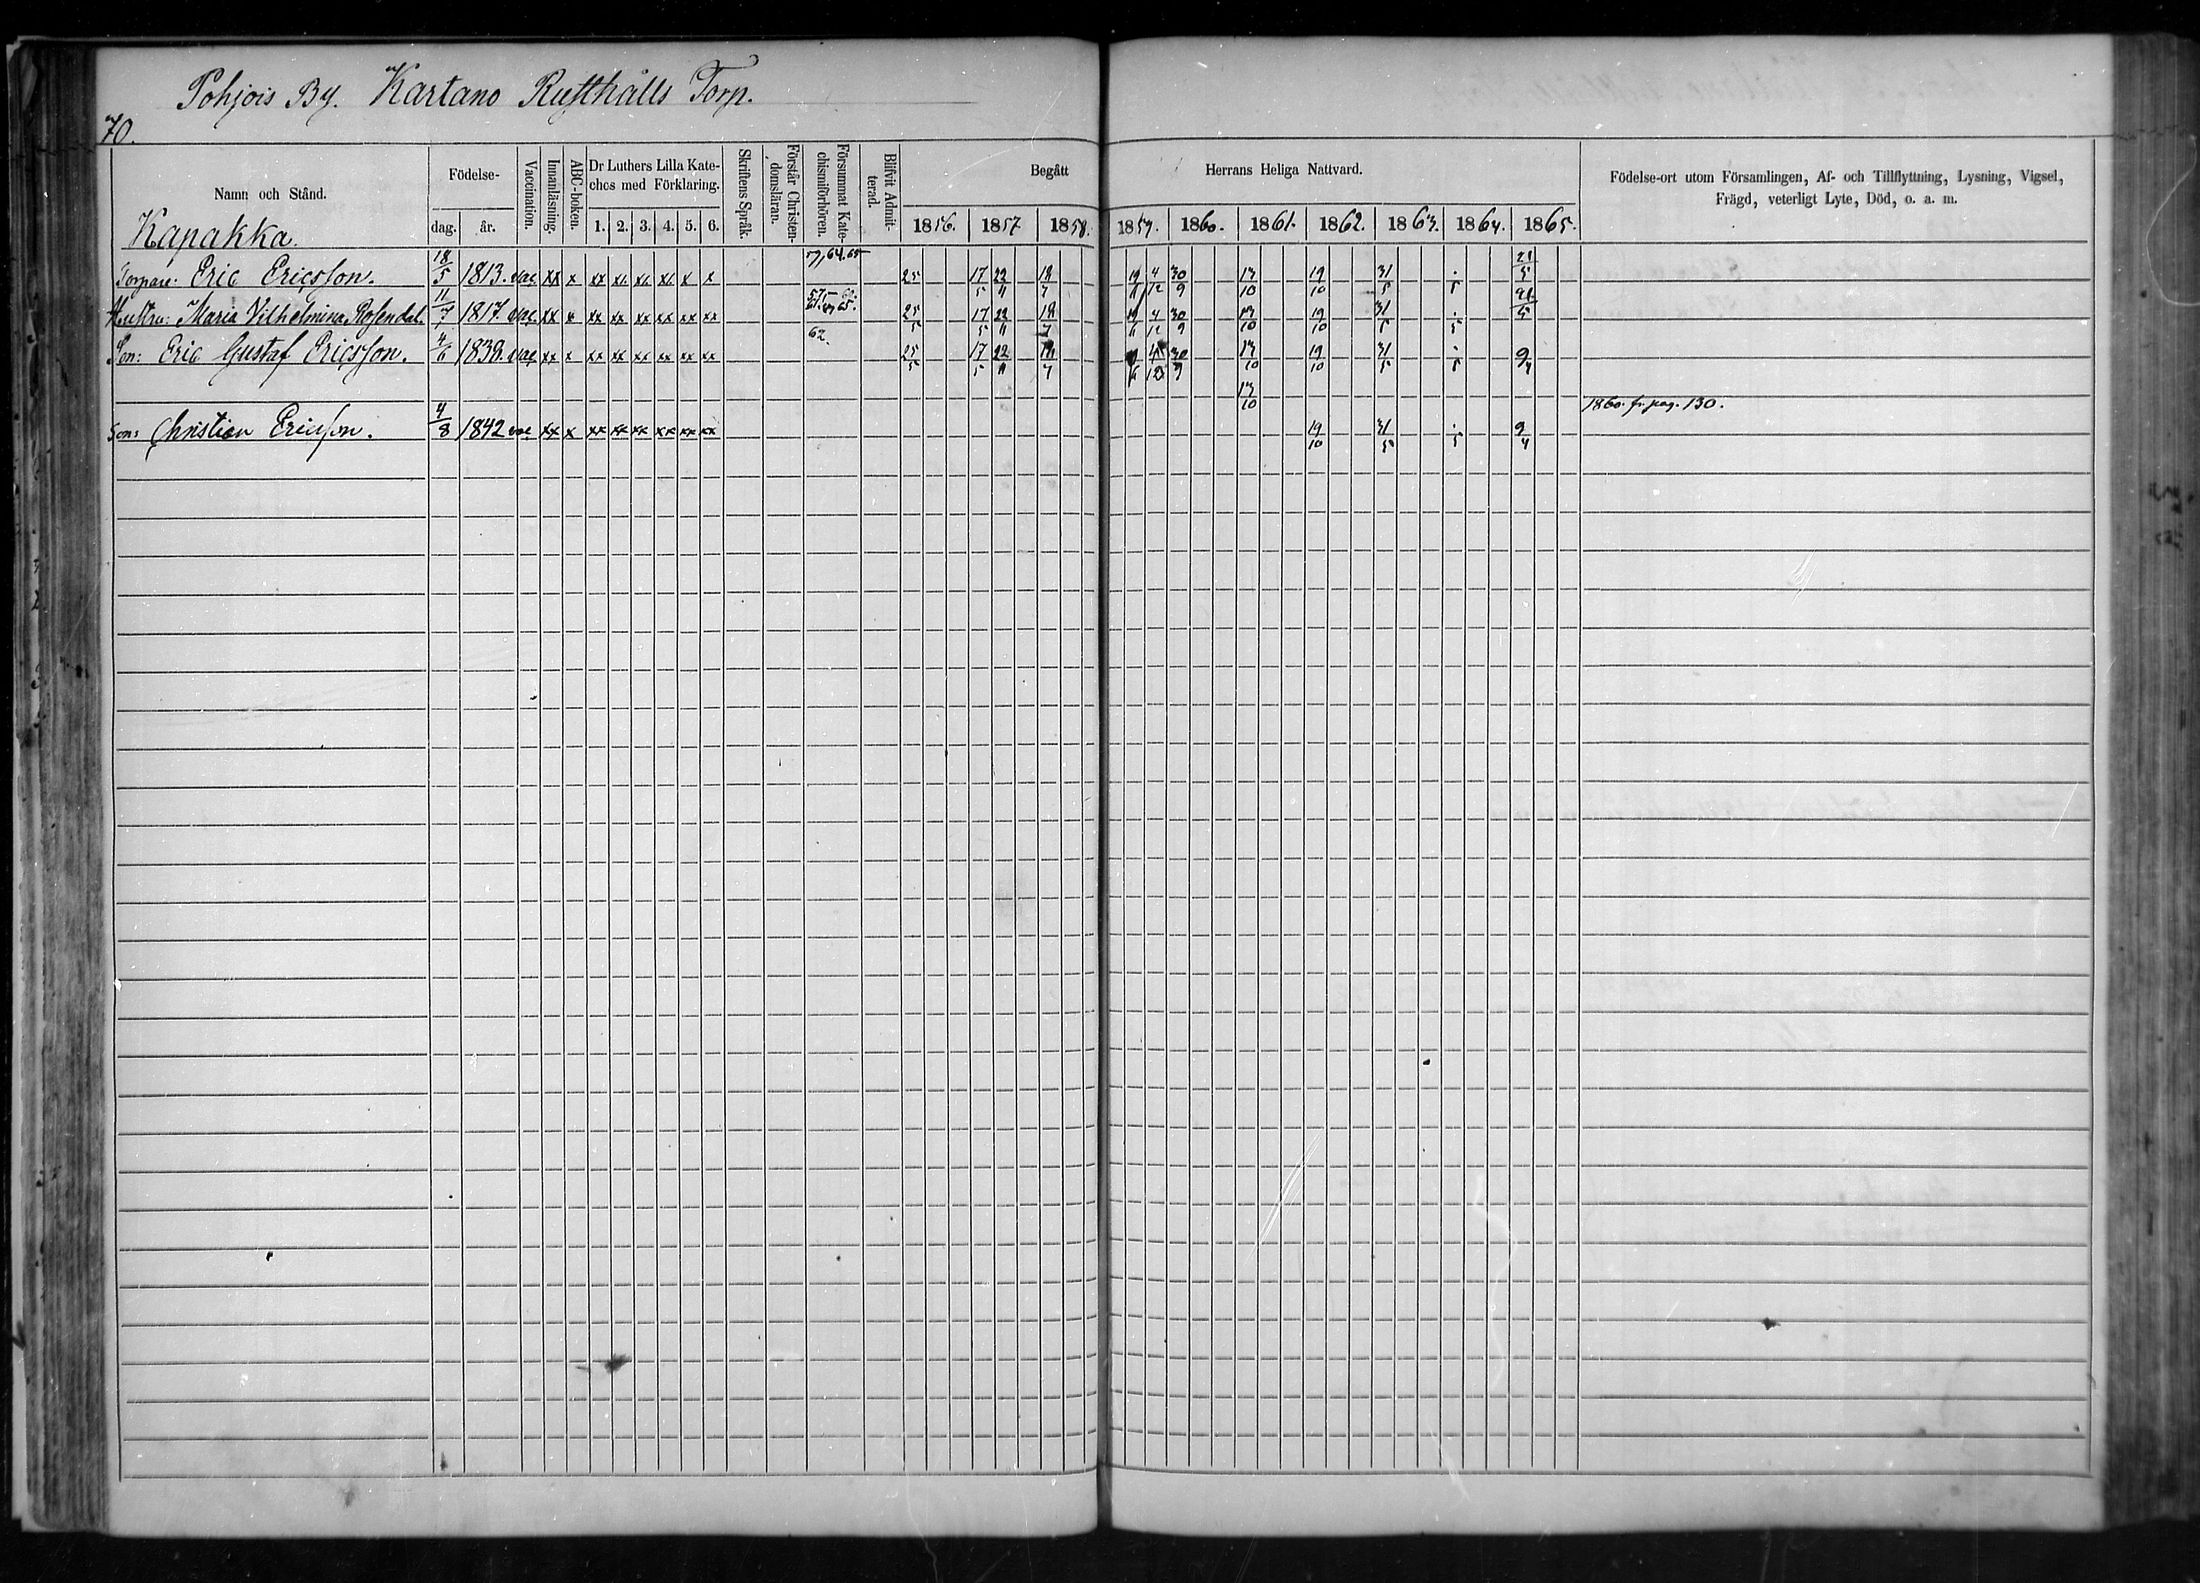 Pohjois By. Kartano Rusthålls Torp.
70.
Namn och Stånd.
Födelse-
dag. år.
Vaccination.
Innanläsning.
ABC-boken.
Dr Luthers Lilla Kate-
ches med Förklaring.
1. 2. 3. 4. 5. 6.
Skriftens Språk.
Förstår Christen-
domsläran.
Försummat Kate-
chismiförhören.
Blifvit Admit-
terad.
Begått Herrans Heliga Nattvard.
1856. 1857 1858. 1859. 1860. 1861. 1862. 1863. 1864. 1865.
Födelse-ort utom Församlingen, Af- och Tillflyttning, Lysning, Vigsel,
Frägd, veterligt Lyte, Död, o. a. m.
Kapakka.
Torpare: Eric Ericsson. 18/5 1813. vac xx x xx x x 25 17/5 22/11 18/7 4/12 30/9 13/10 19/10 31/5 5 21/5
Hustru: Maria Vilhelmina Rosendal. 11/7 1817. vac xx x xx xx xx xx xx xx 25/5 17/5 22/11 18/7 4/12 30/9 13/10 19/10 31/5 5 21/5
Son: Eric Gustaf Ericsson. 4/6 1838. vac xx x xx xx xx xx xx xx 62. 25/5 17/5 22/11 30/9 13/10 19/10 31/5 5 9/4
13/10 1860. fr. pag. 130.
Son: Christian Ericsson. 4/8 1842 vac xx x xx xx xx xx xx xx 19/10 31/5 5 9/4